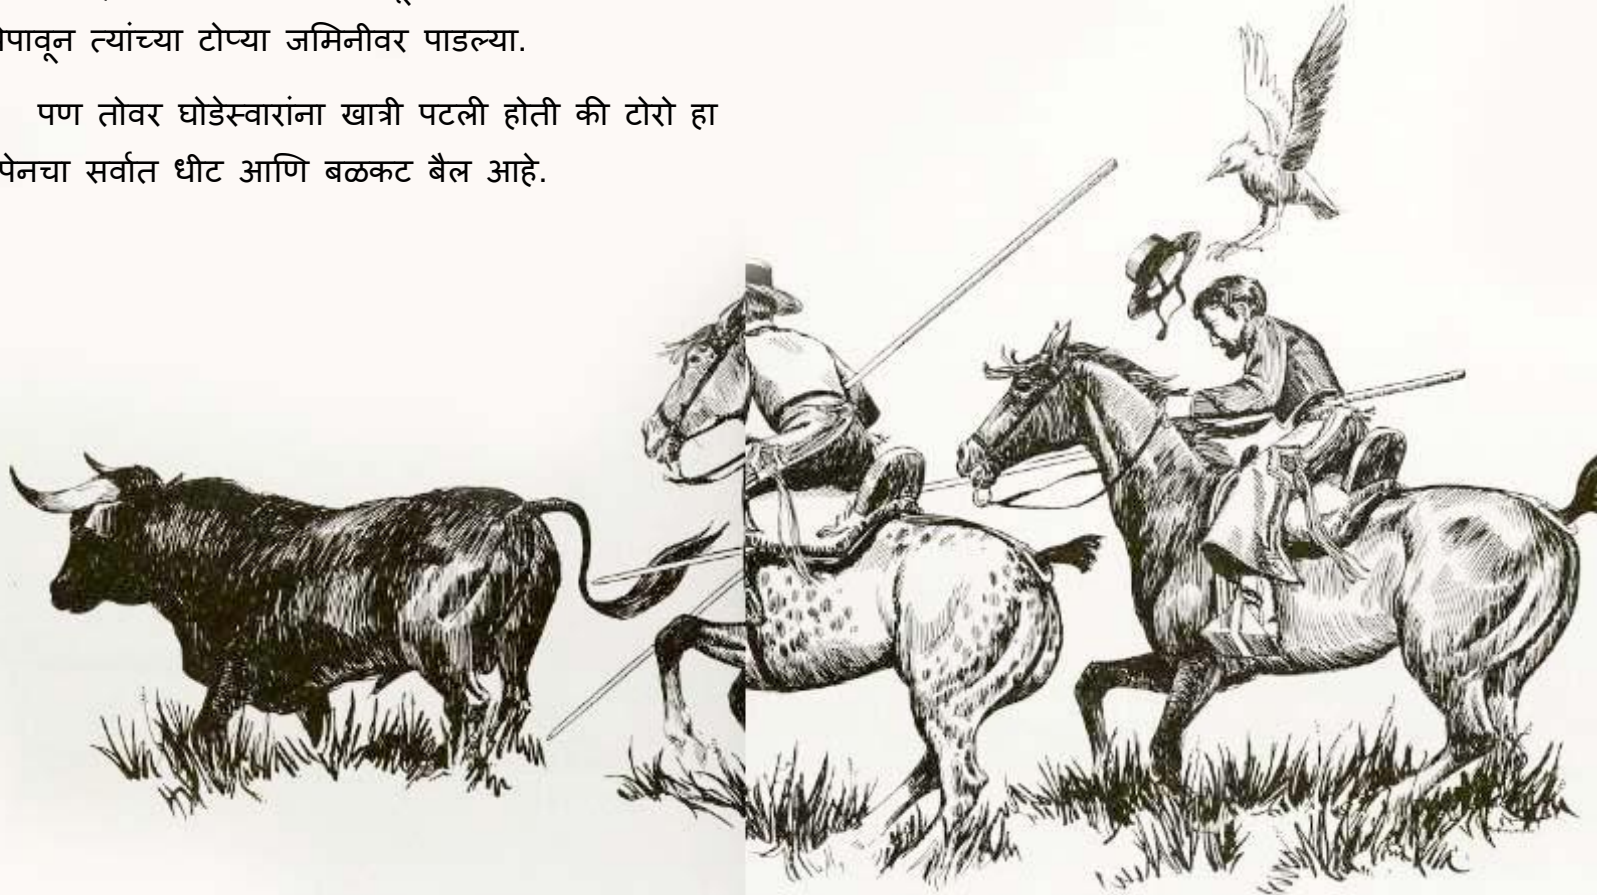 त्यांच्या टोप्या जमिनीवर पाडल्या.
पण तोवर घोडेस्वारांना खात्री पटली होती की टोरो हा
सर्वात धीट आणि बळकट बैल आहे.